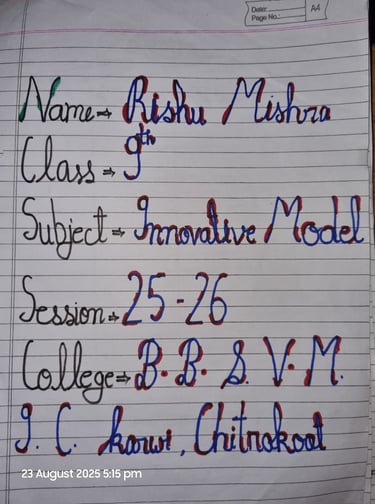 Date:
Page No.:
A4
Name⇒ Rishu Mishra
Class⇒ 9th
Subject⇒ Innovative Model
Session⇒ 25-26
College⇒ B. B. S. V. M.
I. C. karwi, Chitrakoot
23 August 2025 5:15 pm